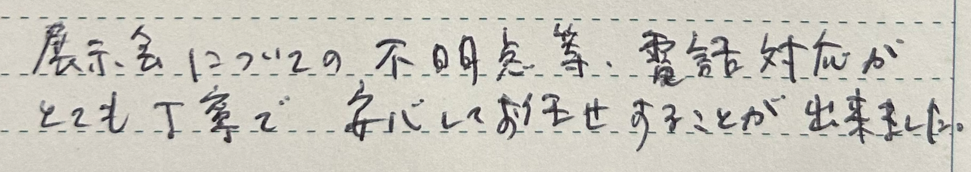 展示会についての不明点等、電話対応が
とても丁寧で安心してお任せすることが出来ました。